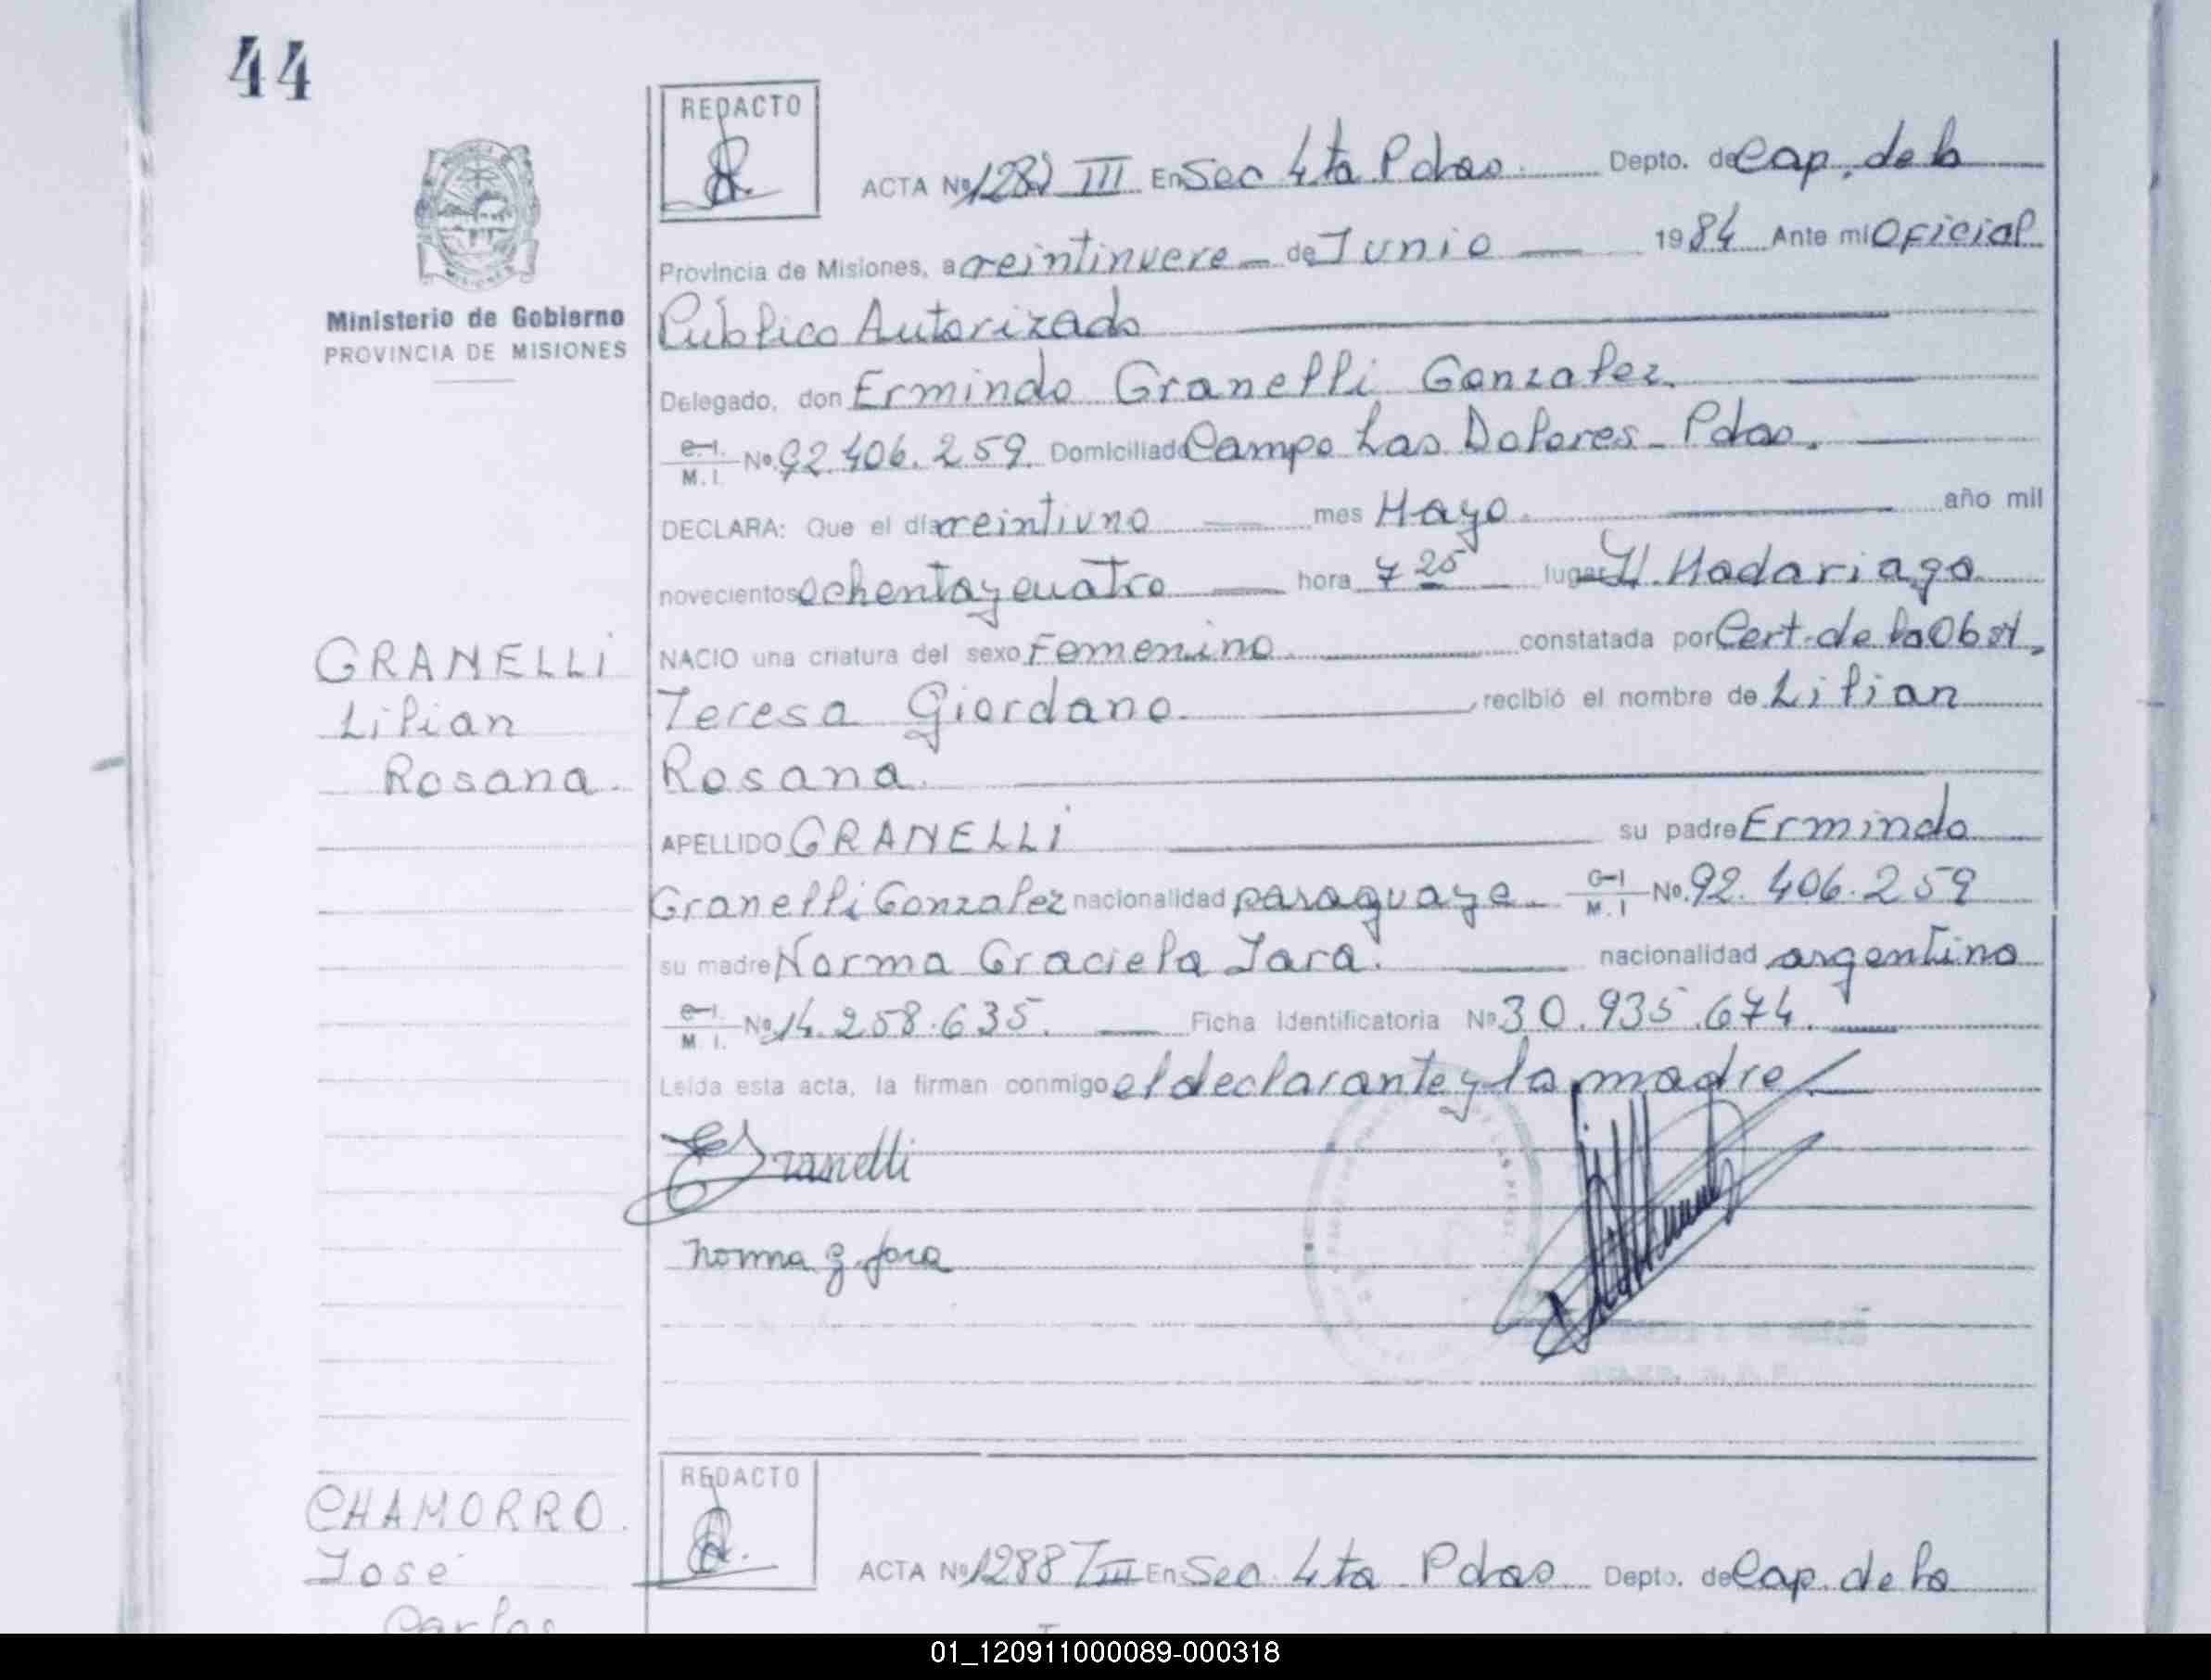 44
REDACTO
ACTA Nº 1287 III En Sec 4ta Pdas. Depto. de Cap. de la
Provincia de Misiones, a veintinueve de Junio 1984 Ante mi Oficial
Ministerio de Gobierno
PROVINCIA DE MISIONES
Público Autorizado
Delegado, don Ermindo Granelli Gonzalez.
C.I.
M.I. Nº 92.406.259. Domiciliado Campo Las Dolores - Pdas.
DECLARA: Que el día veintiuno mes Mayo. año mil
novecientos ochenta y cuatro hora 7 25 lugar H. Madariaga
GRANELLI
Lilian
Rosana.
NACIO una criatura del sexo Femenino. constatada por Cert. de la Obst.
Teresa Giordano. recibió el nombre de Lilian
Rosana.
APELLIDO GRANELLI su padre Ermindo
Granelli Gonzalez nacionalidad paraguaya C-I M.I Nº 92.406.259
su madre Norma Graciela Jara. nacionalidad argentina
C.I.
M.I. Nº 14.258.635. Ficha Identificatoria Nº 30.935.674.
Leída esta acta, la firman conmigo el declarante y la madre
EGranelli
Norma G. Jara
CHAMORRO.
José
Carlos
REDACTO
ACTA Nº 1288 T III En Sec. 4ta Pdas Depto. de Cap. de la
01_120911000089-000318